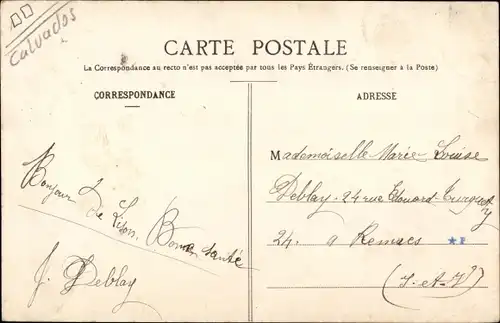 Calvados
CARTE POSTALE
La Correspondance au recto n'est pas acceptée par tous les Pays Étrangers. (Se renseigner à la Poste)
CORRESPONDANCE
ADRESSE
Bonjour
de Lison.
Bonne santé
J. Deblay
Mademoiselle Marie Louise
Deblay. 24 rue Edouard Turquety
24. a Rennes
(I-et-V)